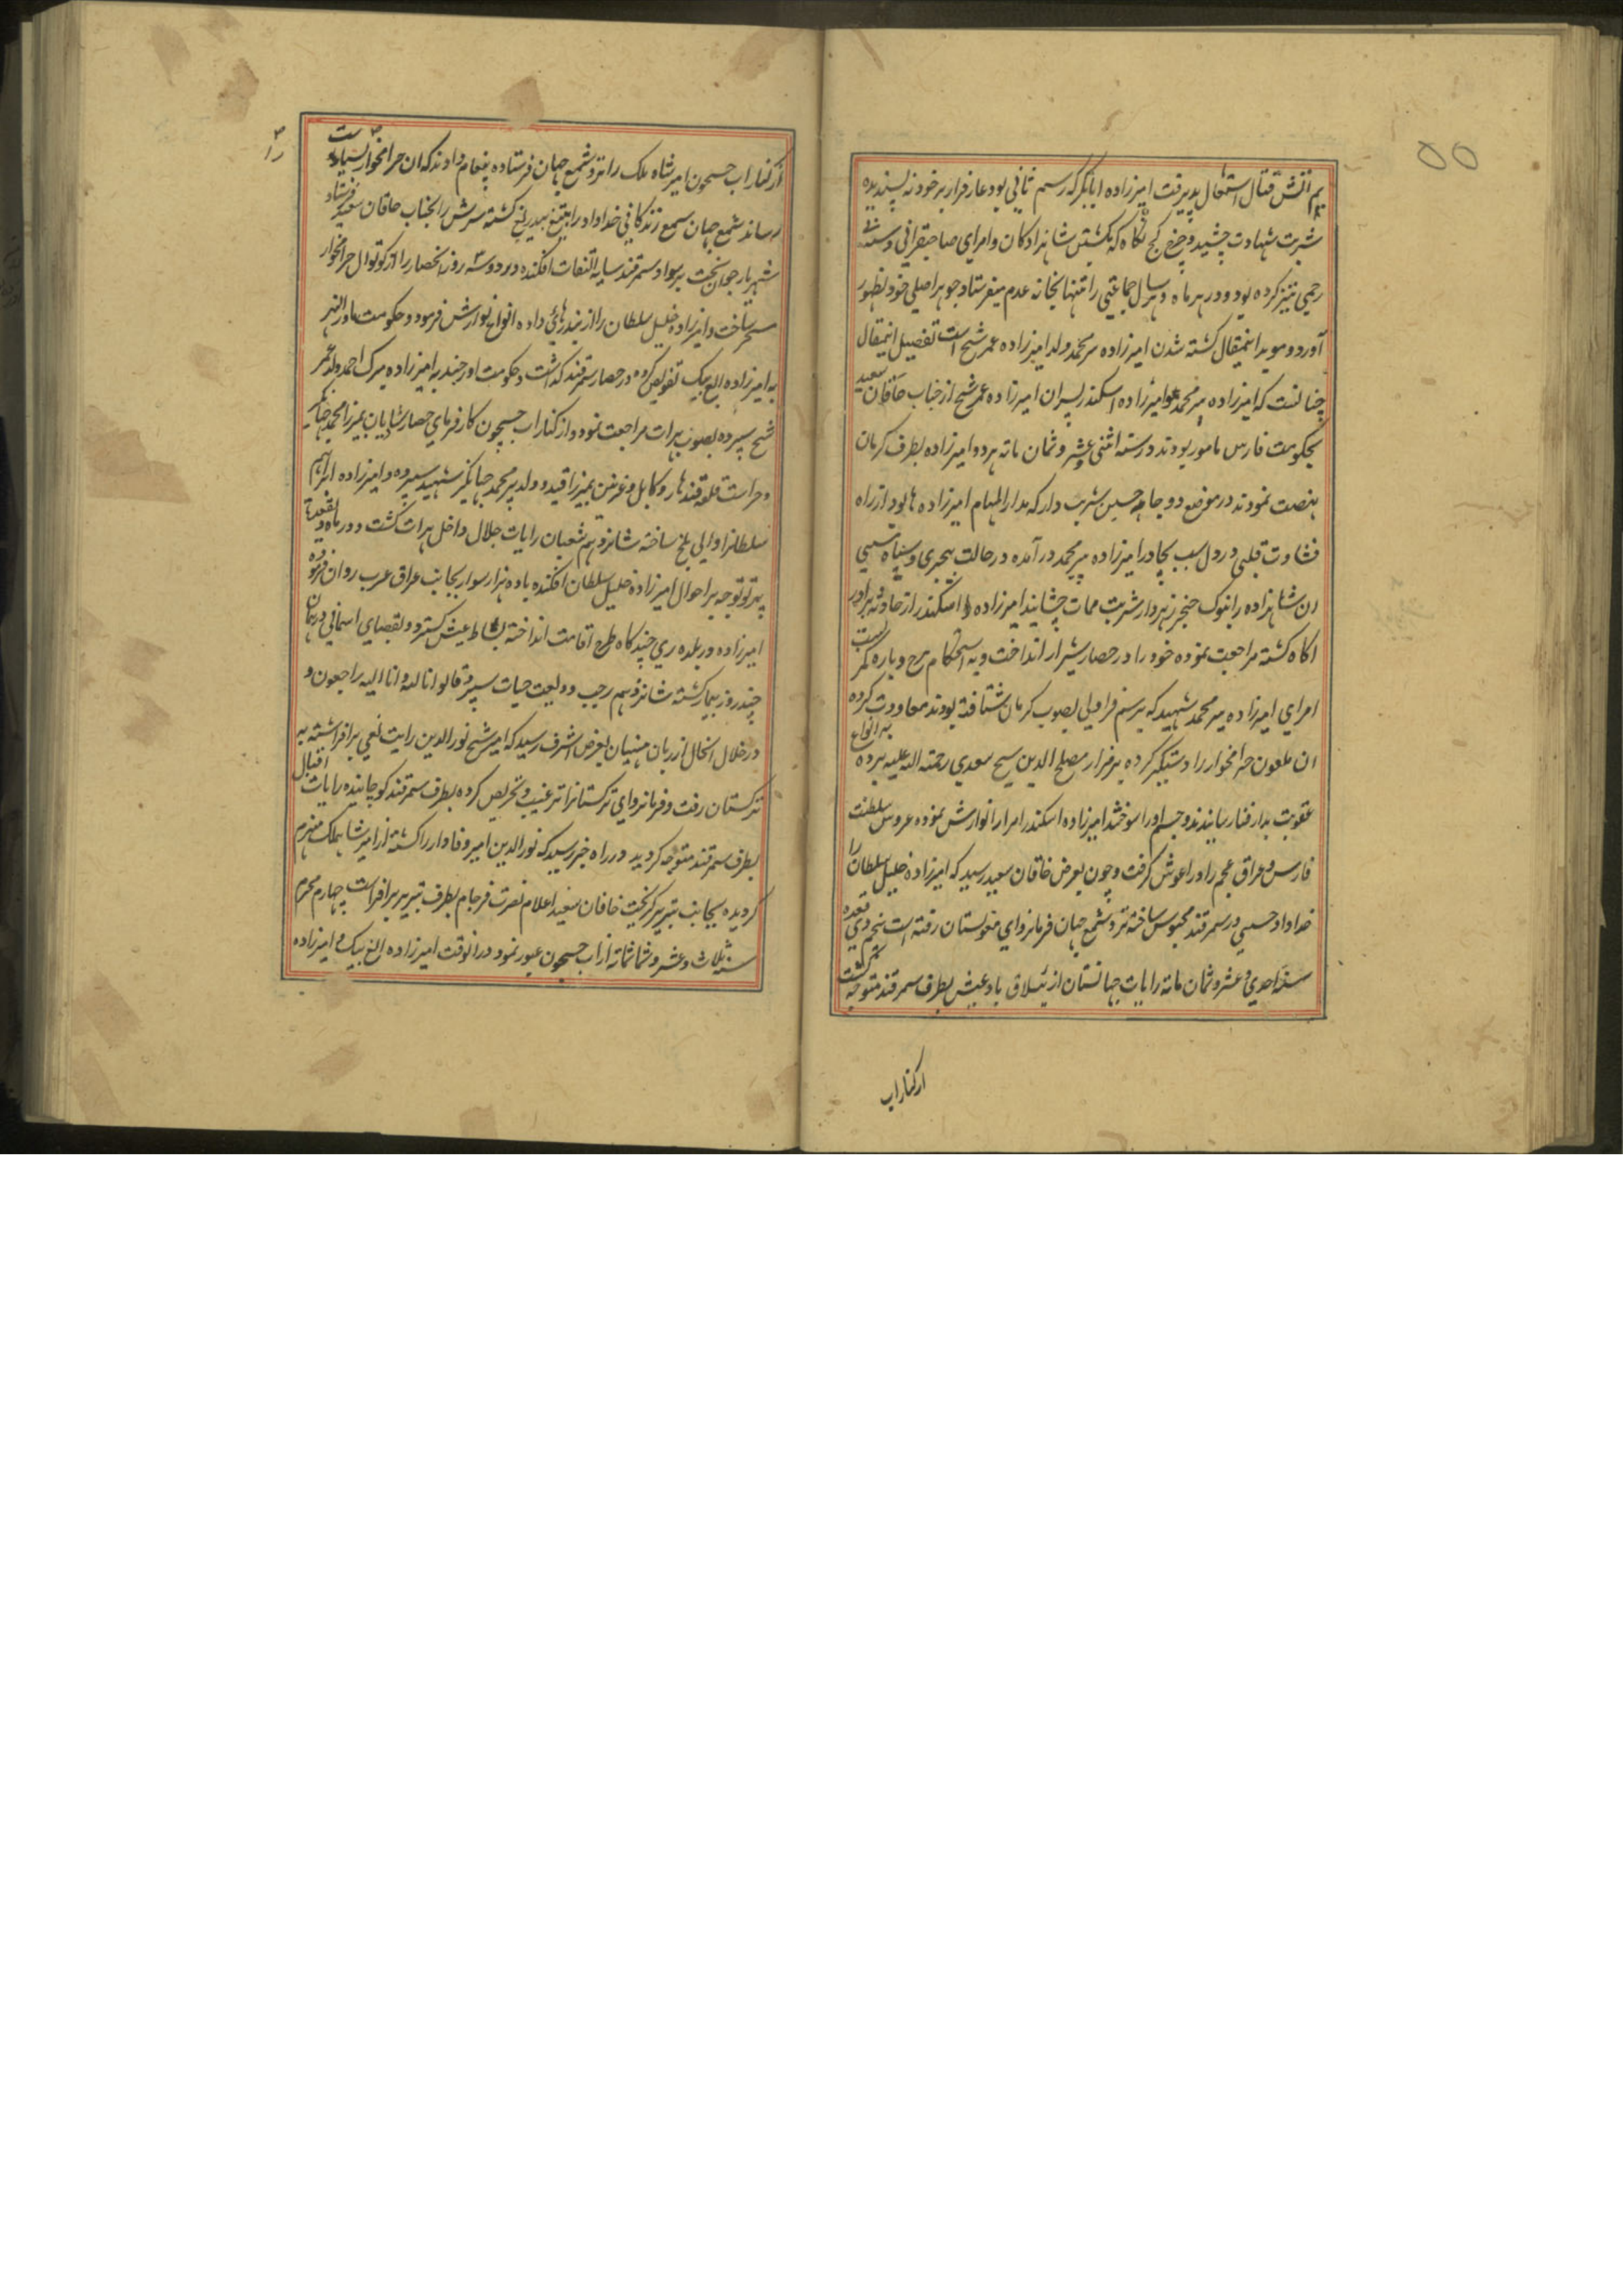 ۵۵
آتش قتال اشتعال پذیرفت امیرزاده ابابکر که رستم ثانی بود عار فرار بر خود نه پسندیده
شربت شهادت چشید و چرخ کج نکاه که بکشتن شاهزادکان و امرای صاحبقرانی
رحمی نیز کرده بود و در هر ماه و هر سال جماعتی را تنها بخانه عدم میفرستاد جوهر اصلی خود بظهور
آورد و موید اینمقال کشته شدن امیرزاده پیر محمد ولد امیرزاده عمر شیخ است تفصیل اینمقال
چنانست که امیرزاده پیر محمد و امیرزاده اسکندر پسران امیرزاده عمر شیخ از جناب خاقان سعید
بحکومت فارس مامور بودند در سنه اثنی عشر و ثمان مائة هر دو امیرزاده بطرف کرمان
نهضت نمودند در موضع دو چاهه حسین شربت دار که مدار المهام امیرزاده ها بود از راه
قساوت قلبی در دل شب بچادر امیرزاده پیر محمد در آمده در حالت بیخبری و سیاه مستی
ان شاهزاده را بنوک خنجر زهردار شربت ممات چشانید امیرزاده اسکندر از حادثه برادر
اکاه کشته مراجعت نموده خود را در حصار شیراز انداخت و به استحکام برج و باره کمر بست
امرای امیرزاده پیر محمد شهید که برسم قراولی بصوب کرمان شتافته بودند معاودت کرده
ان ملعون حرامخوار را دستکیر کرده بر مزار مصلح الدین شیخ سعدی رحمته الله علیه برده به انواع
عقوبت بدار فنا رسانیدند و جسم او را سوختند امیرزاده اسکندر امرا را نوازش نموده عروس سلطنت
فارس و عراق عجم را در اغوش کرفت و چون بعرض خاقان سعید رسید که امیرزاده خلیل سلطان را
خداداد حسینی در سمرقند محبوس ساخته نزد شمع جهان فرمانروای مغولستان رفته است پنجم ذی قعده
سنه احدی و عشر و ثمان مائة رایات جهانستان از ییلاق بادغیش بطرف سمرقند متوجه کشت
از کنار اب
از کنار اب جیحون امیر شاه ملک را نزد شمع جهان فرستاده پیغام دادند که ان حرامخوار
رساند شمع جهان شمع زندکانی خداداد را بتیغ بیدریغ کشته سرش را بجناب خاقان سعید فرستاد
شهریار جوان بخت بر سواد سمرقند سایه التفات افکنده در دو سه روز انحصار را از کوتوال حرامخوار
مسخر ساخت و امیرزاده خلیل سلطان را از بند رهائی داده انواع نوازش فرمود و حکومت ماورالنهر
به امیرزاده الغ بیک تفویض کرده در حصار سمرقند کذاشت و حکومت اورجند به امیرزاده میرک احمد ولد عمر
شیخ سپرده بصوب هرات مراجعت نمود و از کنار اب جیحون کارفرمای حصار شادیان بمیرزا محمد جهانکیر
و حراست قلعه قندهار و کابل و غزنین بمیرزا قیدو ولد پیر محمد جهانکیر شهید سپرده و امیرزاده ابراهیم
سلطانرا والی بلخ ساخته شانزدهم شعبان رایات جلال داخل هرات کشت و در ماه ذیقعده
پرتو توجه بر احوال امیرزاده خلیل سلطان افکنده با ده هزار سوار بجانب عراق عرب روان فرمود
امیرزاده در بلده ری چند کاه طرح اقامت انداخته بساط عیش کسترد و بقضای اسمانی در همان
چند روز بیمار کشته شانزدهم رجب ودیعت حیات سپرد قالو انا لله و انا الیه راجعون و
در خلال انحال از زبان منهیان بعرض اشرف رسید که امیر شیخ نور الدین رایت بغی بر افراشته به
ترکستان رفت و فرمانروای ترکستانرا ترغیب و تحریص کرده بطرف سمرقند کوچانیده رایات اقبال
بطرف سمرقند متوجه کردید در راه خبر رسید که نورالدین از امیر شاهملک منهزم
کردیده بجانب تبریر کریخت خاقان سعید اعلام نصرت فرجام بطرف تبریر بر افراشت چهارم محرم
سنه ثلاث و عشر و ثمانمائة از اب جیحون عبور نمود در انوقت امیرزاده الغ بیک و امیرزاده